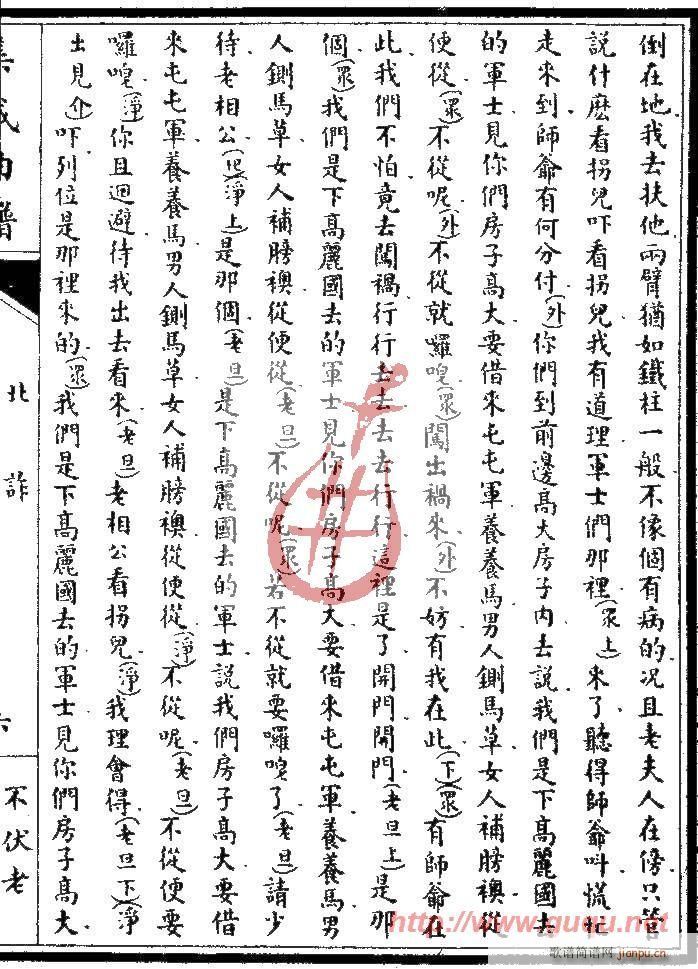 倒在地我去扶他兩臂猶如鐵柱一般不像個有病的况且老夫人在傍只管
説什麽看拐兒吓看拐兒我有道理軍士們那裡(眾上)來了聽得師爺叫慌忙
走來到師爺有何分付(外)你們到前邊高大房子内去説我們是下高麗國去
的軍士見你們房子高大要借來屯屯軍養養馬男人鍘馬草女人補膀襖從
便從(眾)不從呢(外)不從就囉唣(眾)闖出禍來(外)不妨有我在此(下)(眾)有師爺在
此我們不怕竟去闖禍行行去去去去行行這裡是了開門開門(老旦上)是那
個(眾)我們是下高麗國去的軍士見你們房子高大要借來屯屯軍養養馬男
人鍘馬草女人補膀襖從便從(老旦)不從呢(眾)若不從就要囉唣了(老旦)請少
待老相公(淨上)是那個(老旦)是下高麗國去的軍士説我們房子高大要借
來屯屯軍養養馬男人鍘馬草女人補膀襖從便從(淨)不從呢(老旦)不從便要
囉唣(淨)你且迴避待我出去看來(老旦)老相公看拐兒(淨)我理會得(老旦下)(淨
出見介)吓列位是那裡來的(眾)我們是下高麗國去的軍士見你們房子高大
集成曲譜
北詐
六
不伏老
http://www.guqu.net
歌谱简谱网
jianpu.cn